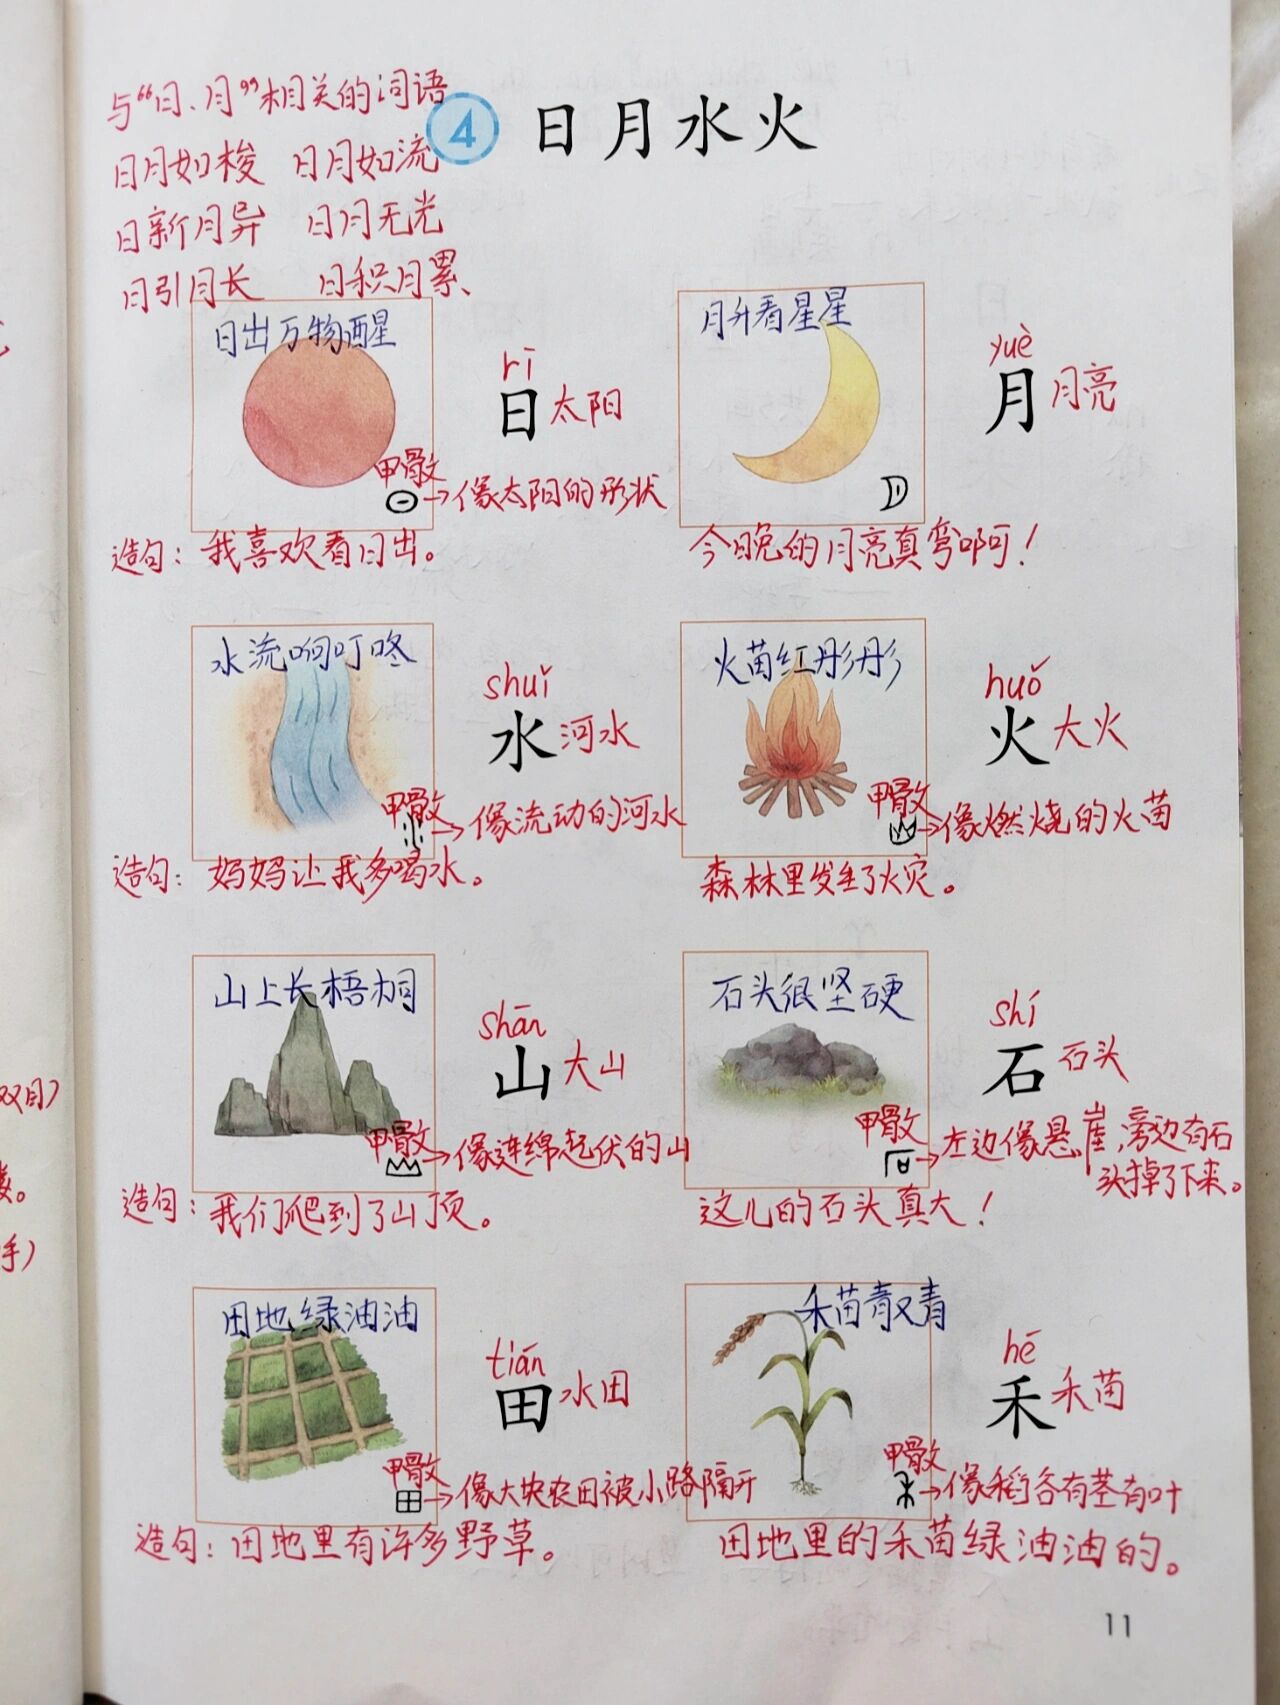 与“日、月”相关的词语
④ 日月水火
日月如梭 日月如流
日新月异 日月无光
日引月长 日积月累
日出万物醒
rī
日 太阳
甲骨文
→像太阳的形状
造句：我喜欢看日出。
月升看星星
yuè
月 月亮
今日晚的月亮真弯啊！
水流响叮咚
shuǐ
水 河水
甲骨文
→像流动的河水
造句：妈妈让我多喝水。
火苗红彤彤
huǒ
火 大火
甲骨文
→像燃烧的火苗
森林里发生了火灾。
山上长梧桐
shān
山 大山
甲骨文
→像连绵起伏的山
造句：我们爬到了山顶。
石头很坚硬
shí
石 石头
甲骨文
→左边像悬崖，旁边有石
头掉了下来。
这儿的石头真大！
田地绿油油
tián
田 水田
甲骨文
→像大块农田被小路隔开
造句：田地里有许多野草。
禾苗青又青
hē
禾 禾苗
甲骨文
→像稻谷有茎有叶
田地里的禾苗绿油油的。
双目）
。
手）
11